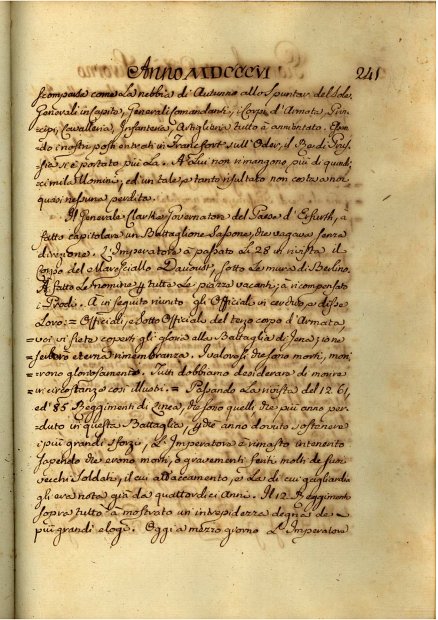 Anno MDCCCVI 241
scomparse come la nebbia d'Autunno allo spuntar del Sole.
Generali in Capite, Generali Comandanti, i Corpi d'Armata, Prin-
cipi, Cavalleria, Infanteria, Artiglieria tutto à annientato. Essen-
do i nostri posti entrati in Francfort sull'Oder, il Rè di Prus-
sia si è portato più la. A Lui non rimangono più di quindi-
ci mila Uomini, ed un tale, e tanto risultato non costa a noi
quasi nessuna perdita.
Il Generale Clarke Governatore del Paese d'Erfurth, à
fatto capitolare un Battaglione Sassone, che vagava senza
direzione. L'Imperatore à passato li 28 in rivista il
Corpo del Maresciallo Davoust, sotto le mura di Berlino.
A fatto le nomine per tutte le piazze vacanti; à ricompensato
i Prodi. A in seguito riunito gli Officiali in cerchio, e disse
Loro: = Officiali, e Sotto Officiali del terzo corpo d'Armata,
= voi vi siete coperti di gloria alla Battaglia di Jena; io ne
= serberò eterna rimembranza. I valorosi che sono morti, mo-
= rirono gloriosamente. Tutti dobbiamo desiderare di morire
= in circostanze così illustri. = Passando la rivista del 12. 61
ed' 85 Reggimenti di Linea, che sono quelli che più anno per-
duto in questa Battaglia, perche anno dovuto sostenere
i più grandi sforzi, L'Imperatore è rimasto intenerito
sapendo che erano morti, o gravemente feriti molti de suoi
vecchi Soldati, il cui attaccamento, e la di cui gagliardia
gli era nota già da quattordici Anni. Il 12. Reggimento
sopra tutto à mostrato un'intrepidezza degna de
più grandi elogi. Oggi a mezzo giorno L'Imperatore